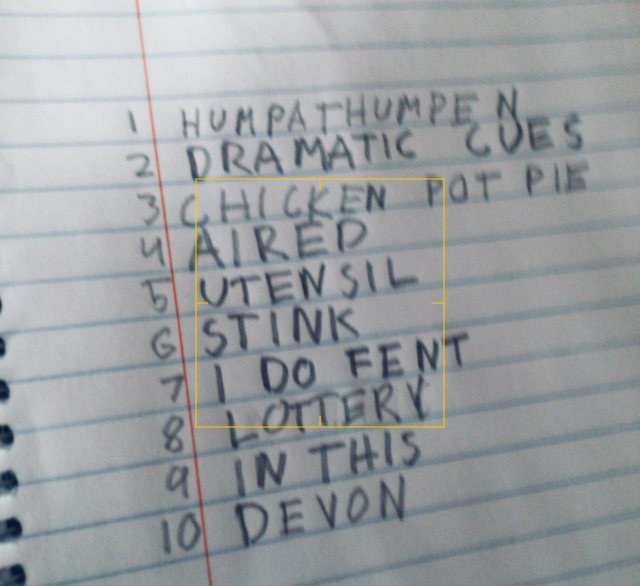 1 HUMPATHUMPEN
2 DRAMATIC CUES
3 CHICKEN POT PIE
4 AIRED
5 UTENSIL
6 STINK
7 I DO FENT
8 LOTTERY
9 IN THIS
10 DEVON